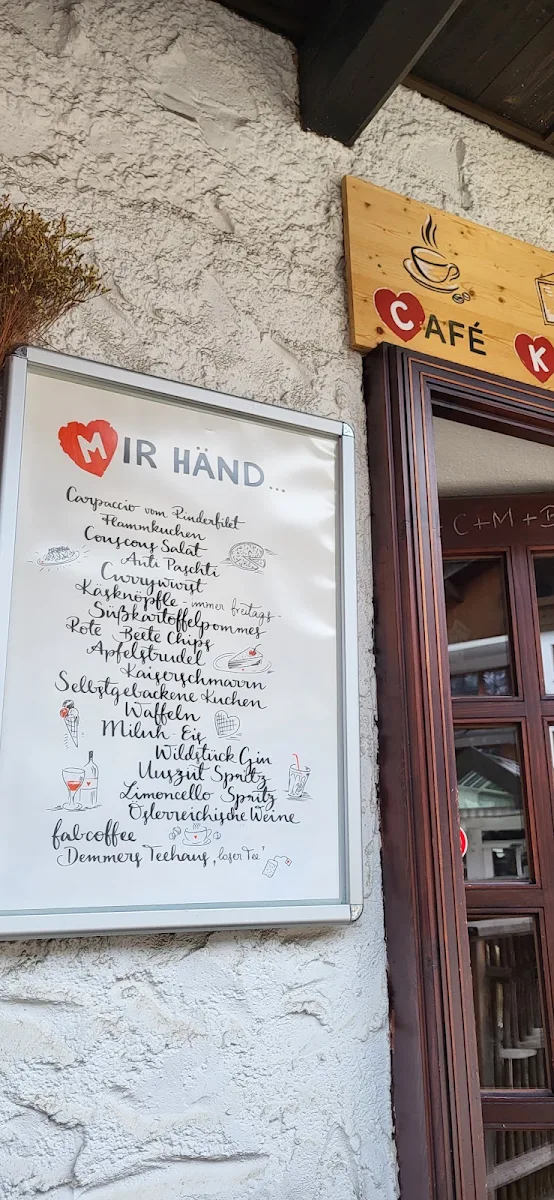 CAFÉ
K
C+M+B
MIR HÄND...
Carpaccio vom Rinderfilet
Flammkuchen
Couscous Salat
Anti Paschti
Currywurst
Käsknöpfle - immer freitags -
Süßkartoffelpommes
Rote Beete Chips
Apfelstrudel
Kaiserschmarrn
Selbstgebackene Kuchen
Waffeln
Milch Eis
Wildstück Gin
Uuszüt Spritz
Limoncello Spritz
Österreichische Weine
fab coffee
Demmers Teehaus „loser Tee"